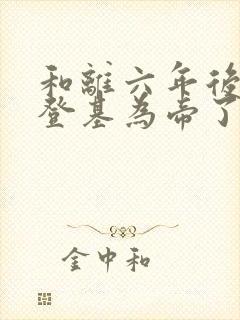 和離六年後
登基為帝了
金中和